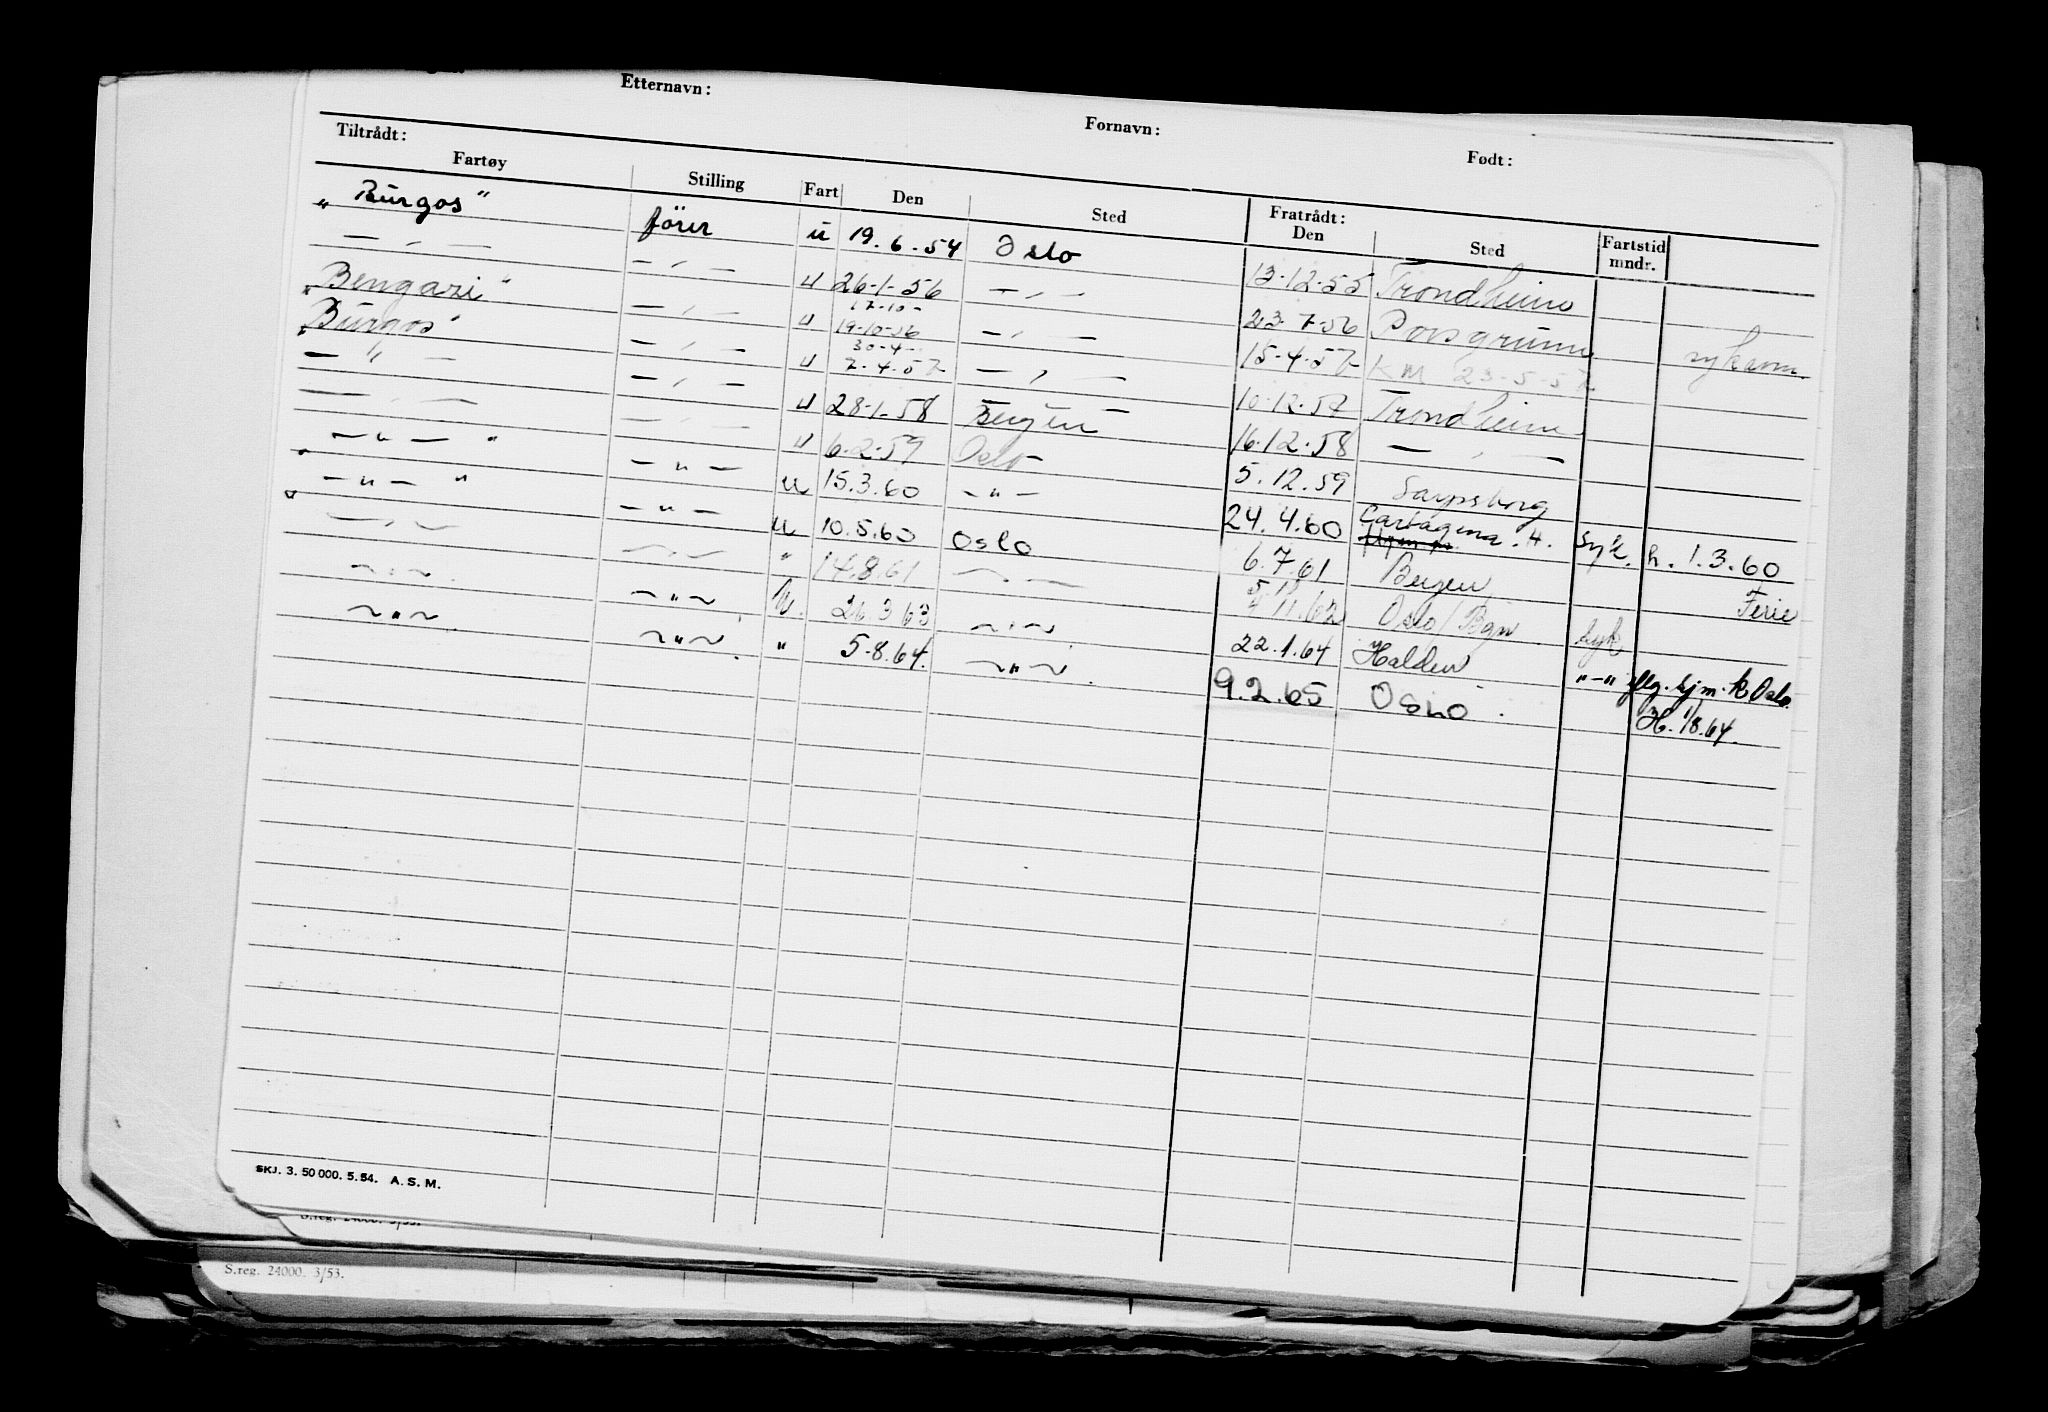 Etternavn: Fornavn: Født:
Tiltrådt: Fratrådt:
Fartøy Stilling Fart Den Sted Den Sted Fartstid mndr.
"Burgos" förer u 19.6.54 Oslo 13.12.55 Trondheim
— " — — " — u 26-1-56 — " — 23.7-56 Porsgrunn
"Bengazi" — " — u 17-10- 19-10-56 — " — 15-4-57 KM 23-5-57 sykdom
"Burgos" — " — u 30-4- 7-4-57 — " — 10-12-57 Trondheim
— " — — " — u 28-1-58 Bergen 16.12.58 — " —
— " — — " — u 6.2.59 Oslo 5.12.59 Sarpsborg
" — " — " — " — u 15.3.60 — " — 24.4.60 Cartagena. H. Syk. h. 1.3.60
" — " — " — " — u 10.5.60 Oslo 6.7.61 Bergen Ferie
— " — — " — " 14.8.61 — " — 11.62 Oslo/Bgn Syk
— " — — " — u. 26.3 63 — " — 22.1.64 Halden "-" flg. sjm.k Oslo.
— " — — " — " 5.8.64. — " — 9.2.65 OSLO. H. 18.64.
SKJ. 3. 50 000. 5. 54. A. S. M.
S.reg. 24000. 3/53.
S.reg. 24000. 3/53.